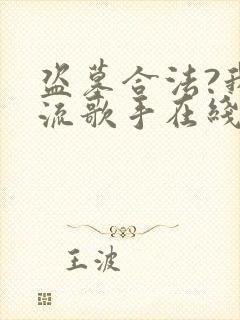 盗墓合法?我
流歌手在线
王波